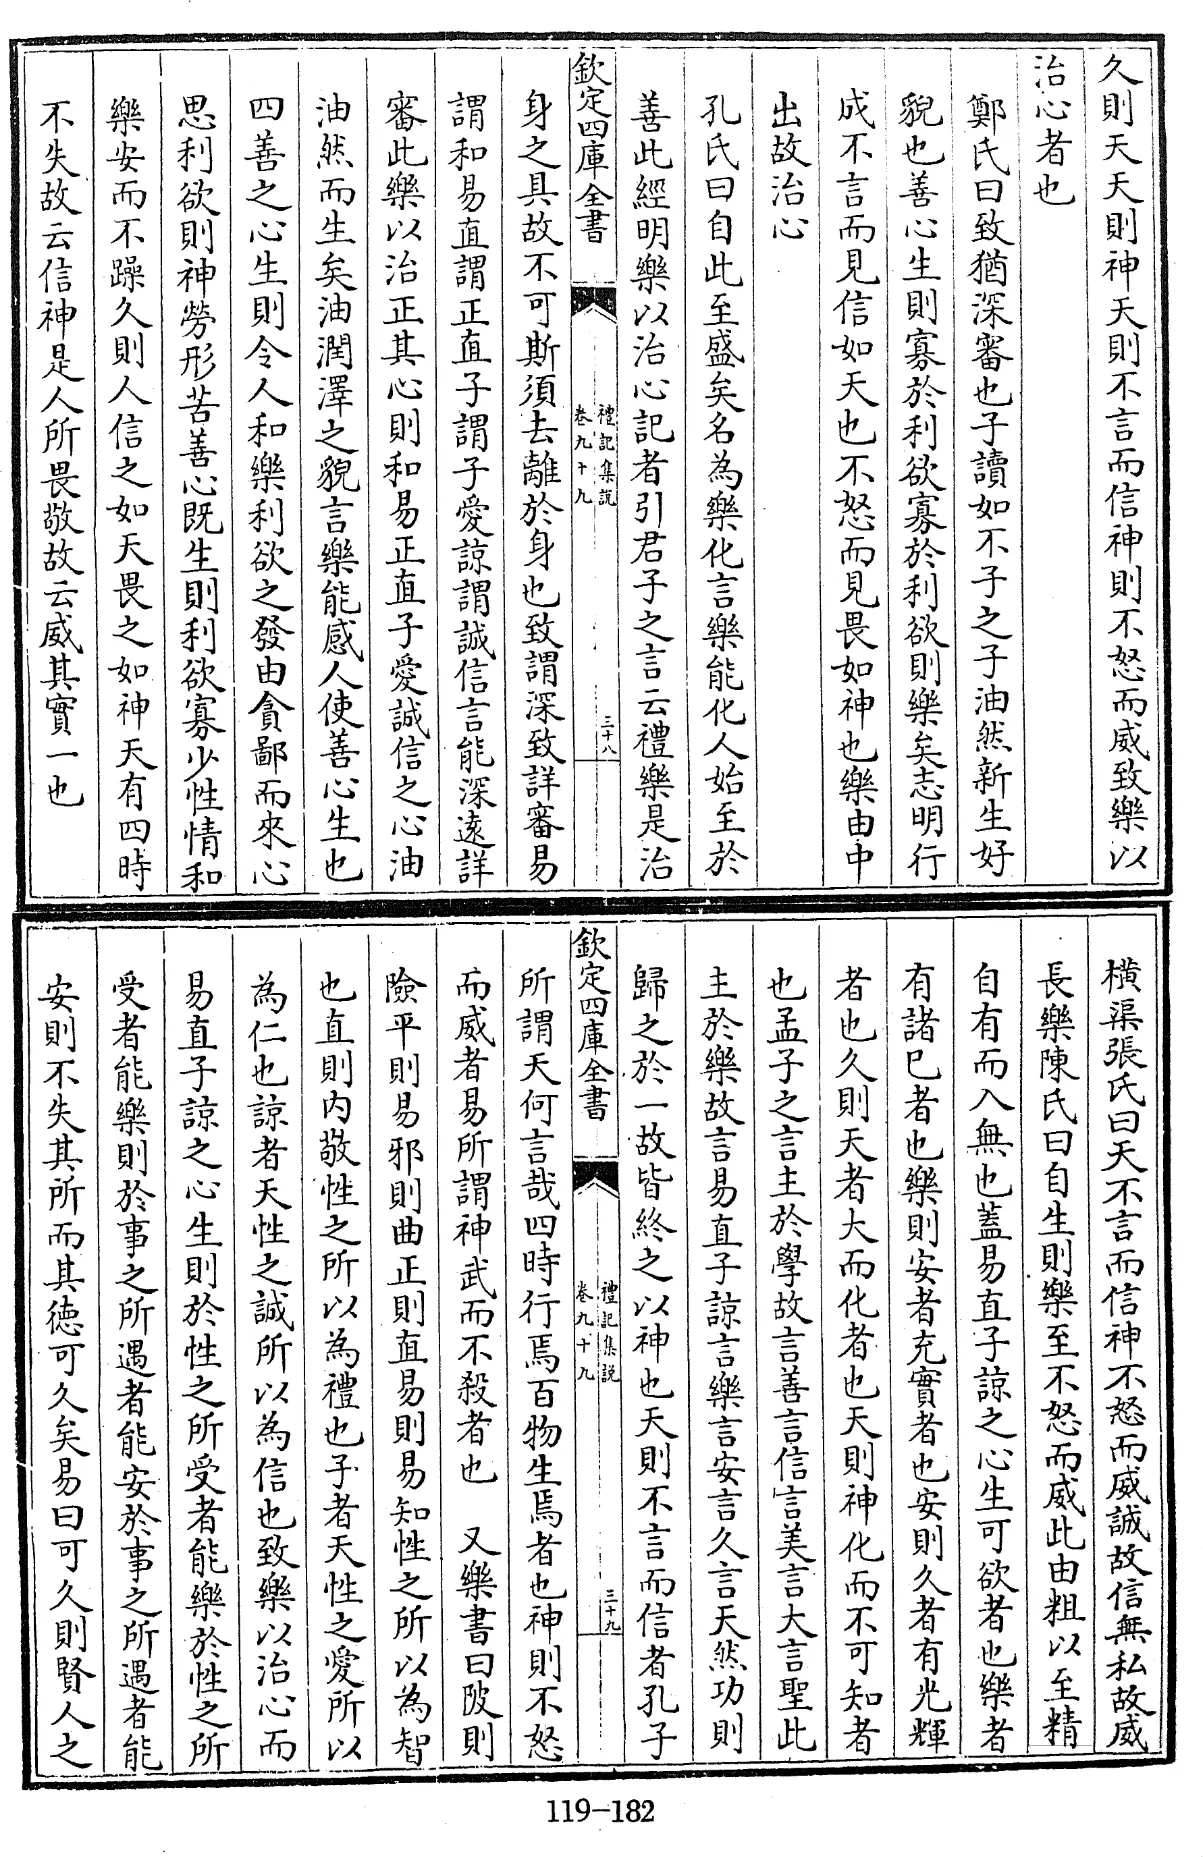 久則天天則神天則不言而信神則不怒而威致樂以
治心者也
鄭氏曰致猶深審也子讀如不子之子油然新生好
貌也善心生則寡於利欲寡於利欲則樂矣志明行
成不言而見信如天也不怒而見畏如神也樂由中
出故治心
孔氏曰自此至盛矣名為樂化言樂能化人始至於
善此經明樂以治心記者引君子之言云禮樂是治
欽定四庫全書
禮記集説
卷九十九
三十八
身之具故不可斯須去離於身也致謂深致詳審易
謂和易直謂正直子謂子愛諒謂誠信言能深遠詳
審此樂以治正其心則和易正直子愛誠信之心油
油然而生矣油潤澤之貌言樂能感人使善心生也
四善之心生則令人和樂利欲之發由貪鄙而來心
思利欲則神勞形苦善心既生則利欲寡少性情和
樂安而不躁久則人信之如天畏之如神天有四時
不失故云信神是人所畏敬故云威其實一也
橫渠張氏曰天不言而信神不怒而威誠故信無私故威
長樂陳氏曰自生則樂至不怒而威此由粗以至精
自有而入無也蓋易直子諒之心生可欲者也樂者
有諸已者也樂則安者充實者也安則久者有光輝
者也久則天者大而化者也天則神化而不可知者
也孟子之言主於學故言善言信言美言大言聖此
主於樂故言易直子諒言樂言安言久言天然功則
歸之於一故皆終之以神也天則不言而信者孔子
欽定四庫全書
禮記集説
卷九十九
三十九
所謂天何言哉四時行焉百物生焉者也神則不怒
而威者易所謂神武而不殺者也　又樂書曰陂則
險平則易邪則曲正則直易則易知性之所以為智
也直則内敬性之所以為禮也子者天性之愛所以
為仁也諒者天性之誠所以為信也致樂以治心而
易直子諒之心生則於性之所受者能樂於性之所
受者能樂則於事之所遇者能安於事之所遇者能
安則不失其所而其德可久矣易曰可久則賢人之
119-182